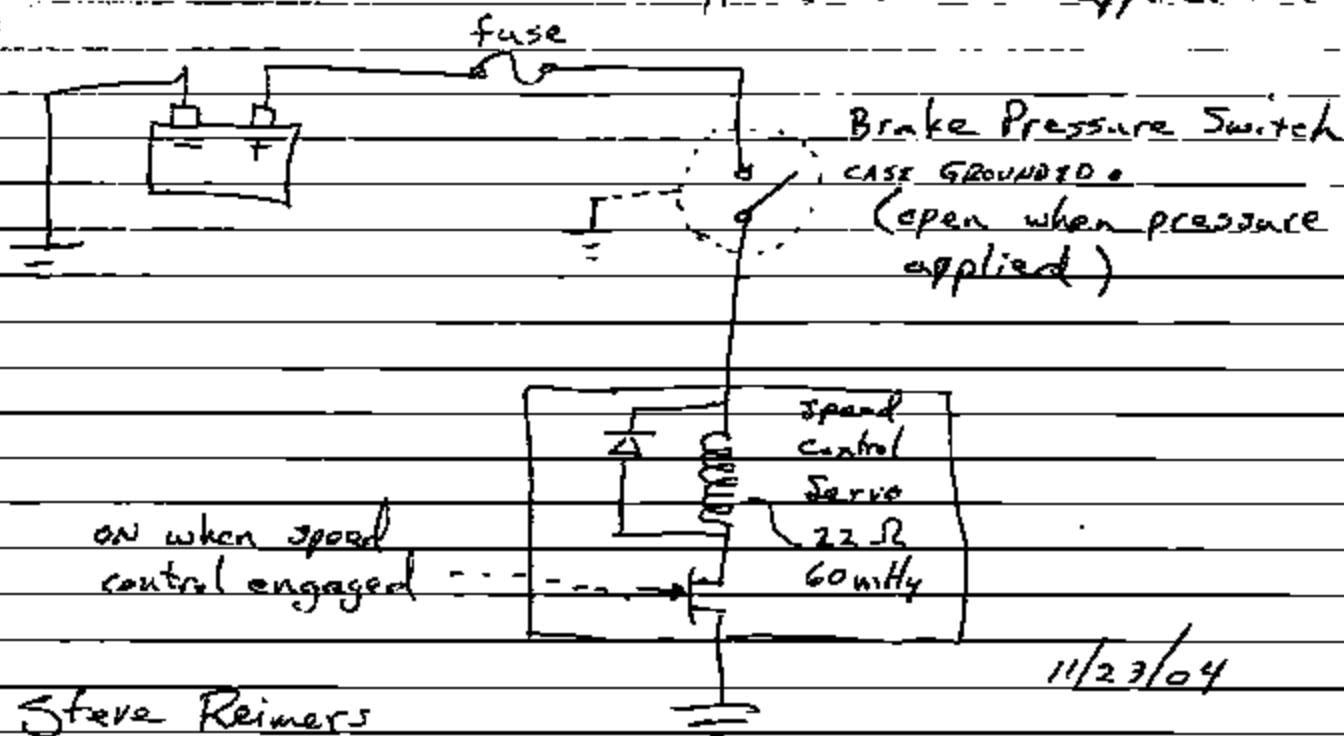 fuse
- +
Brake Pressure Switch
CASE GROUNDED.
(open when pressure
applied)
speed
control
Servo
22 Ω
60 mHy
ON when speed
control engaged
11/23/04
Steve Reimers